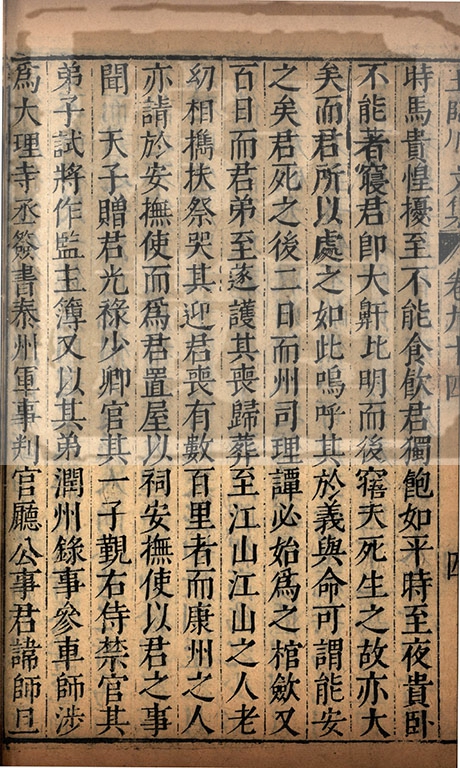 王臨川文集 卷九十四 四
時馬貴惶擾至不能食飲君獨飽如平時至夜貴卧
不能著寢君卽大鼾比明而後寤夫死生之故亦大
矣而君所以處之如此嗚呼其於義與命可謂能安
之矣君死之後二日而州司理譚必始爲之棺斂又
百日而君弟至遂護其喪歸葬至江山江山之人老
幼相擕扶祭哭其迎君喪有數百里者而康州之人
亦請於安撫使而爲君置屋以祠安撫使以君之事
聞 天子贈君光祿少卿官其一子覲右侍禁官其
弟子試將作監主簿又以其弟潤州錄事參車師涉
爲大理寺丞簽書泰州軍事判官廳公事君諱師旦